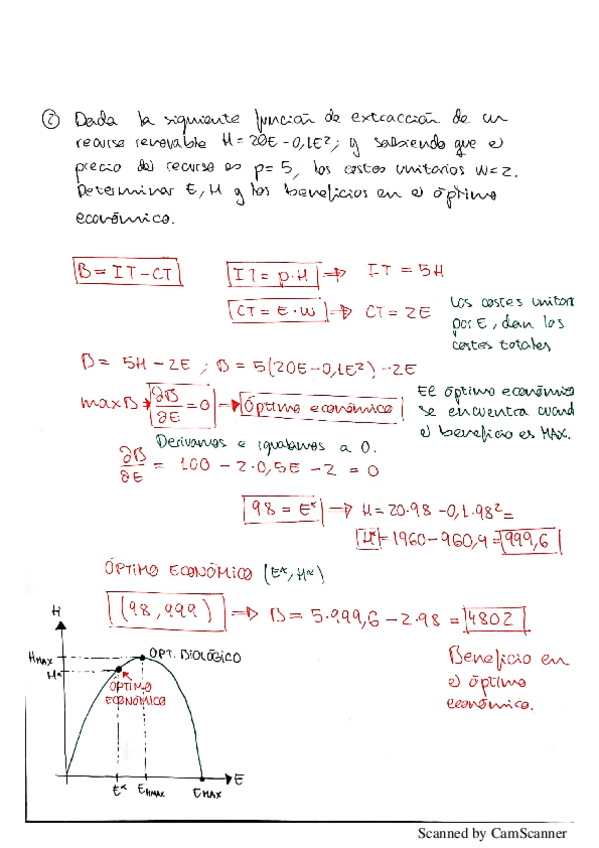 ② Dada la siguiente función de extracción de un
recurso renovable H = 20E - 0,1E²; y sabiendo que el
precio del recurso es p = 5, los costes unitarios w = 2.
Determinar E, H y los beneficios en el óptimo
económico.
B = IT - CT
IT = p·H → IT = 5H
CT = E·W → CT = 2E
Los costes unitar
por E, dan los
costes totales
B = 5H - 2E ; B = 5(20E - 0,1E²) - 2E
max B → ∂B/∂E = 0 → Óptimo económico
El óptimo económico
se encuentra cuand
el beneficio es MAX.
Derivamos e igualamos a 0.
∂B/∂E = 100 - 2·0,5E - 2 = 0
98 = E* → H = 20·98 - 0,1·98² =
H* = 1960 - 960,4 = 999,6
ÓPTIMO ECONÓMICO (E*, H*)
(98, 999) → B = 5·999,6 - 2·98 = 4802
Beneficio en
el óptimo
económico.
H
HMAX
H*
OPT. BIOLÓGICO
ÓPTIMO
ECONÓMICO
E
E*
EHMAX
EMAX
Scanned by CamScanner